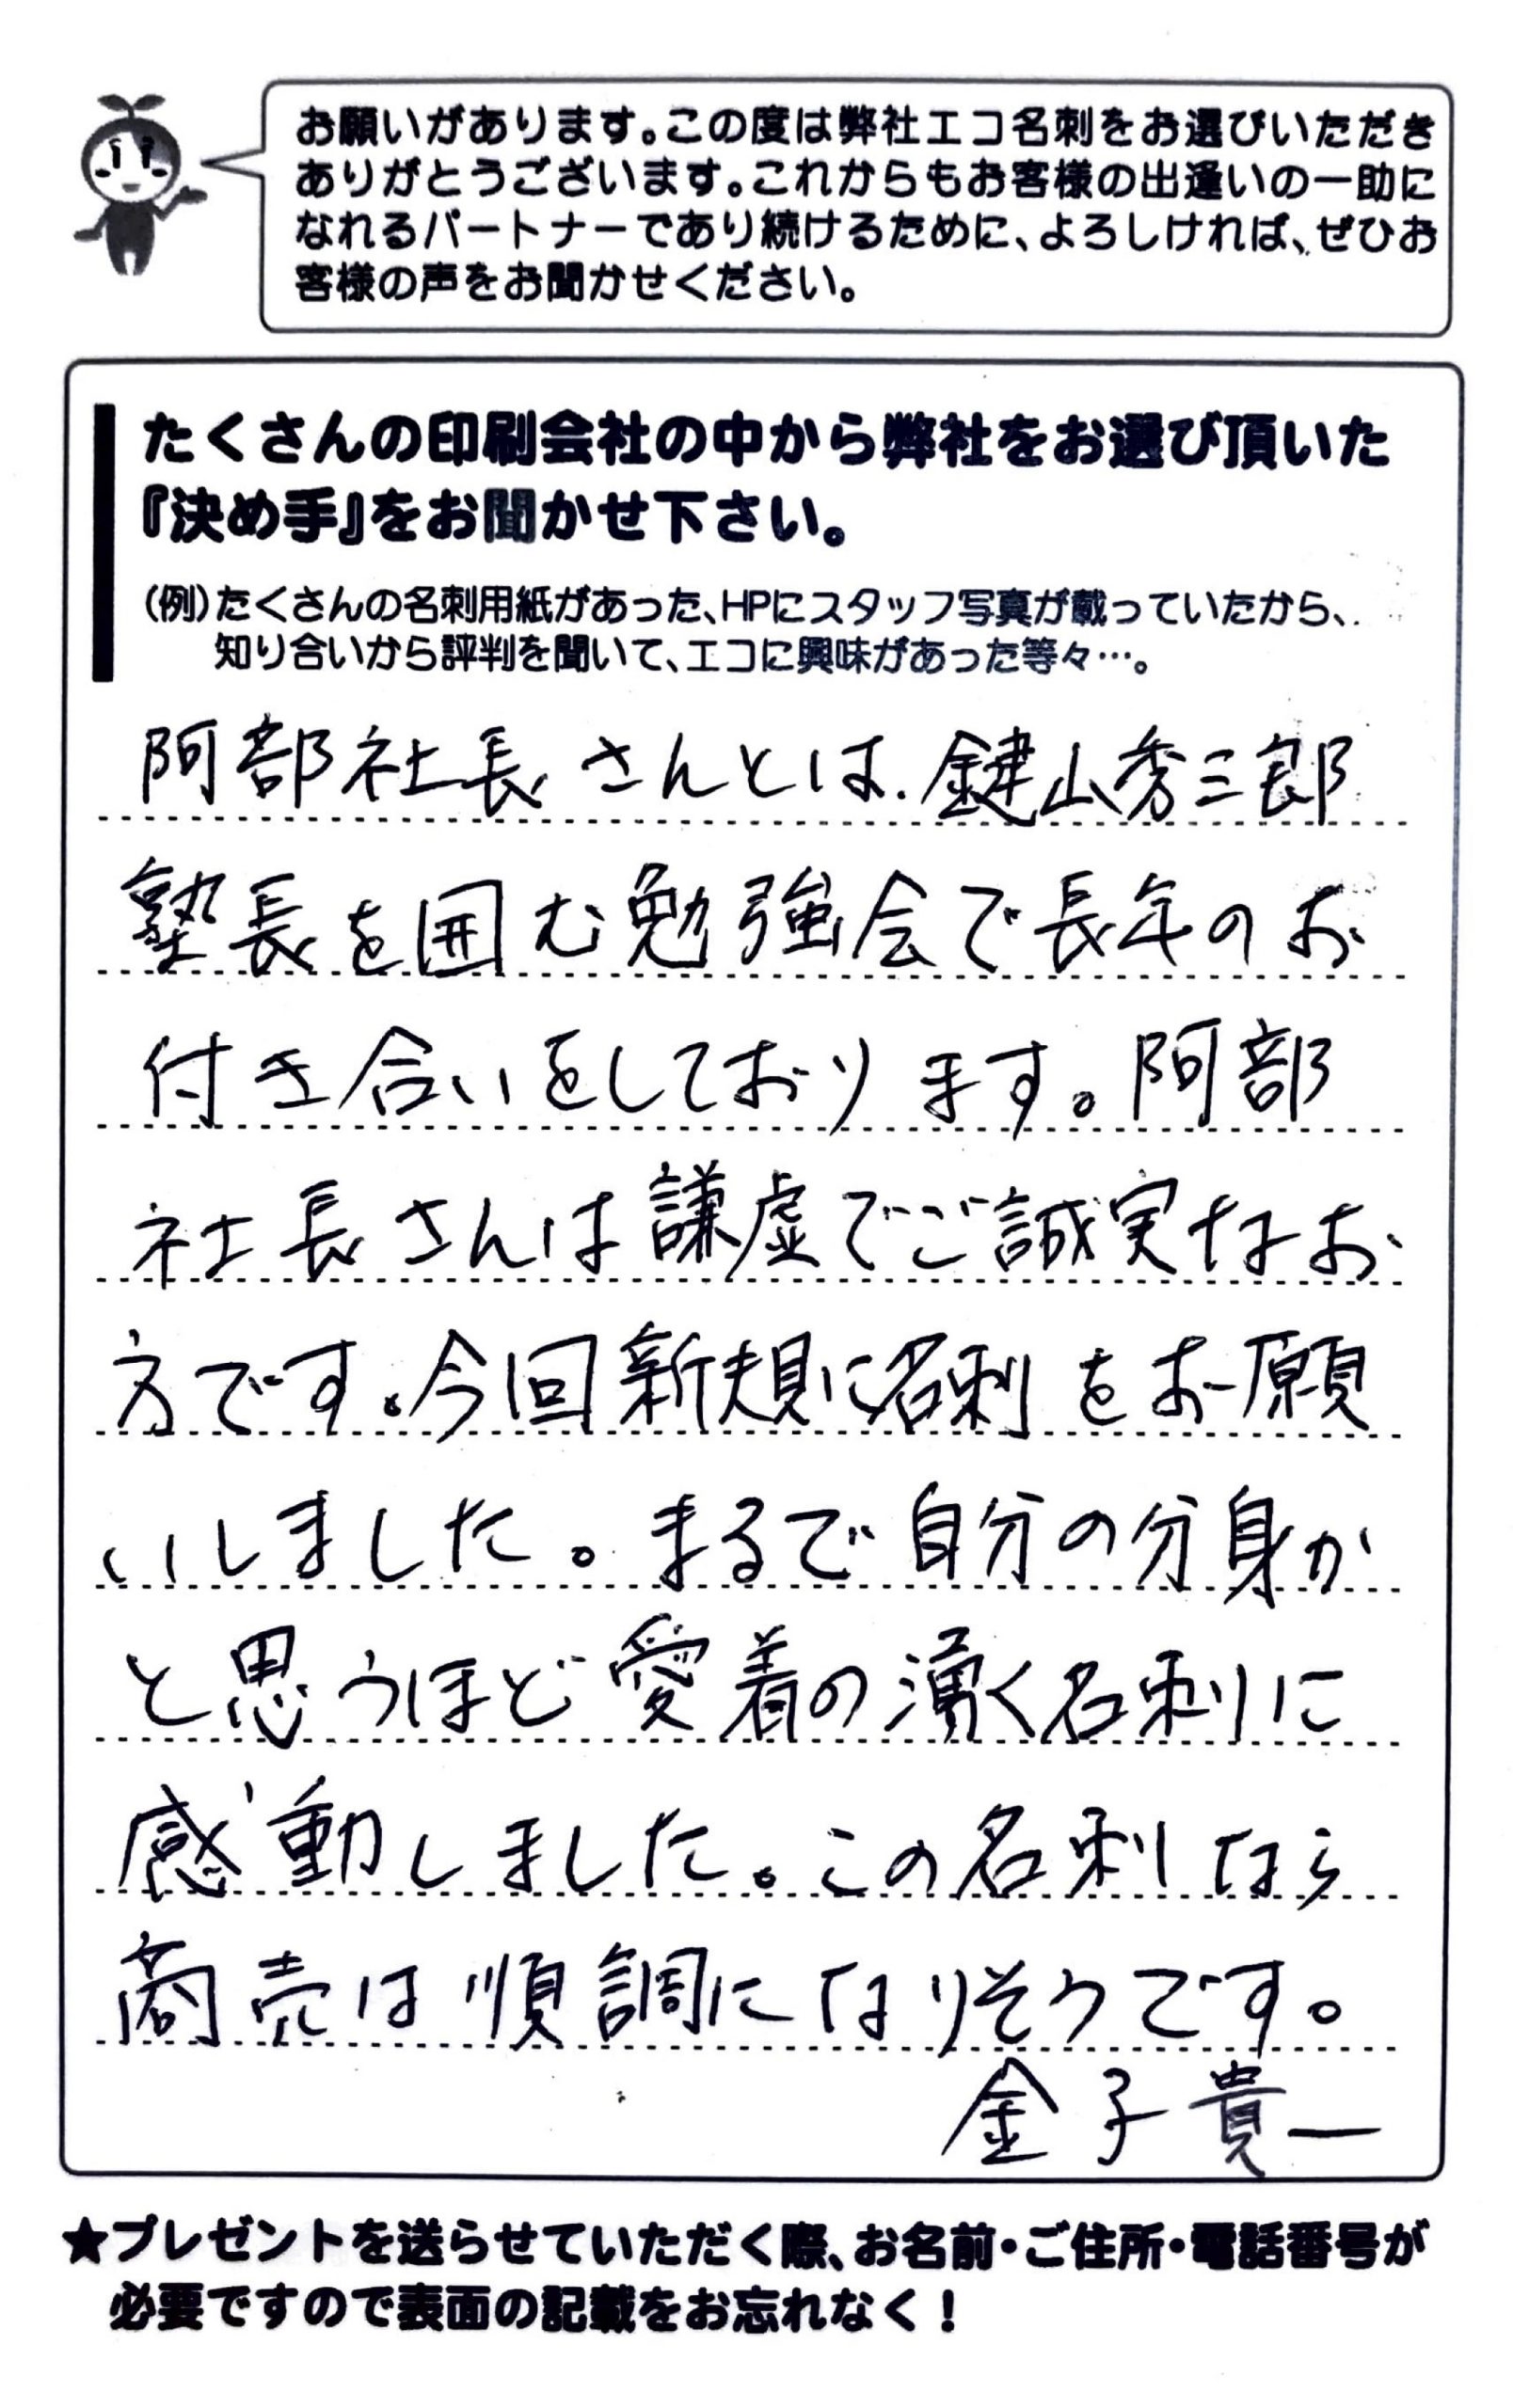 お願いがあります。この度は弊社エコ名刺をお選びいただき
ありがとうございます。これからもお客様の出逢いの一助に
なれるパートナーであり続けるために、よろしければ、ぜひお
客様の声をお聞かせください。
たくさんの印刷会社の中から弊社をお選び頂いた
『決め手』をお聞かせ下さい。
(例)たくさんの名刺用紙があった、HPにスタッフ写真が載っていたから、
知り合いから評判を聞いて、エコに興味があった等々…。
阿部社長さんとは、鍵山秀三郎
塾長を囲む勉強会で長年のお
付き合いをしております。阿部
社長さんは謙虚でご誠実なお
方です。今回新規に名刺をお願
いしました。まるで自分の分身か
と思うほど愛着の湧く名刺に
感動しました。この名刺なら
商売は順調になりそうです。
金子貴一
★プレゼントを送らせていただく際、お名前・ご住所・電話番号が
必要ですので表面の記載をお忘れなく！